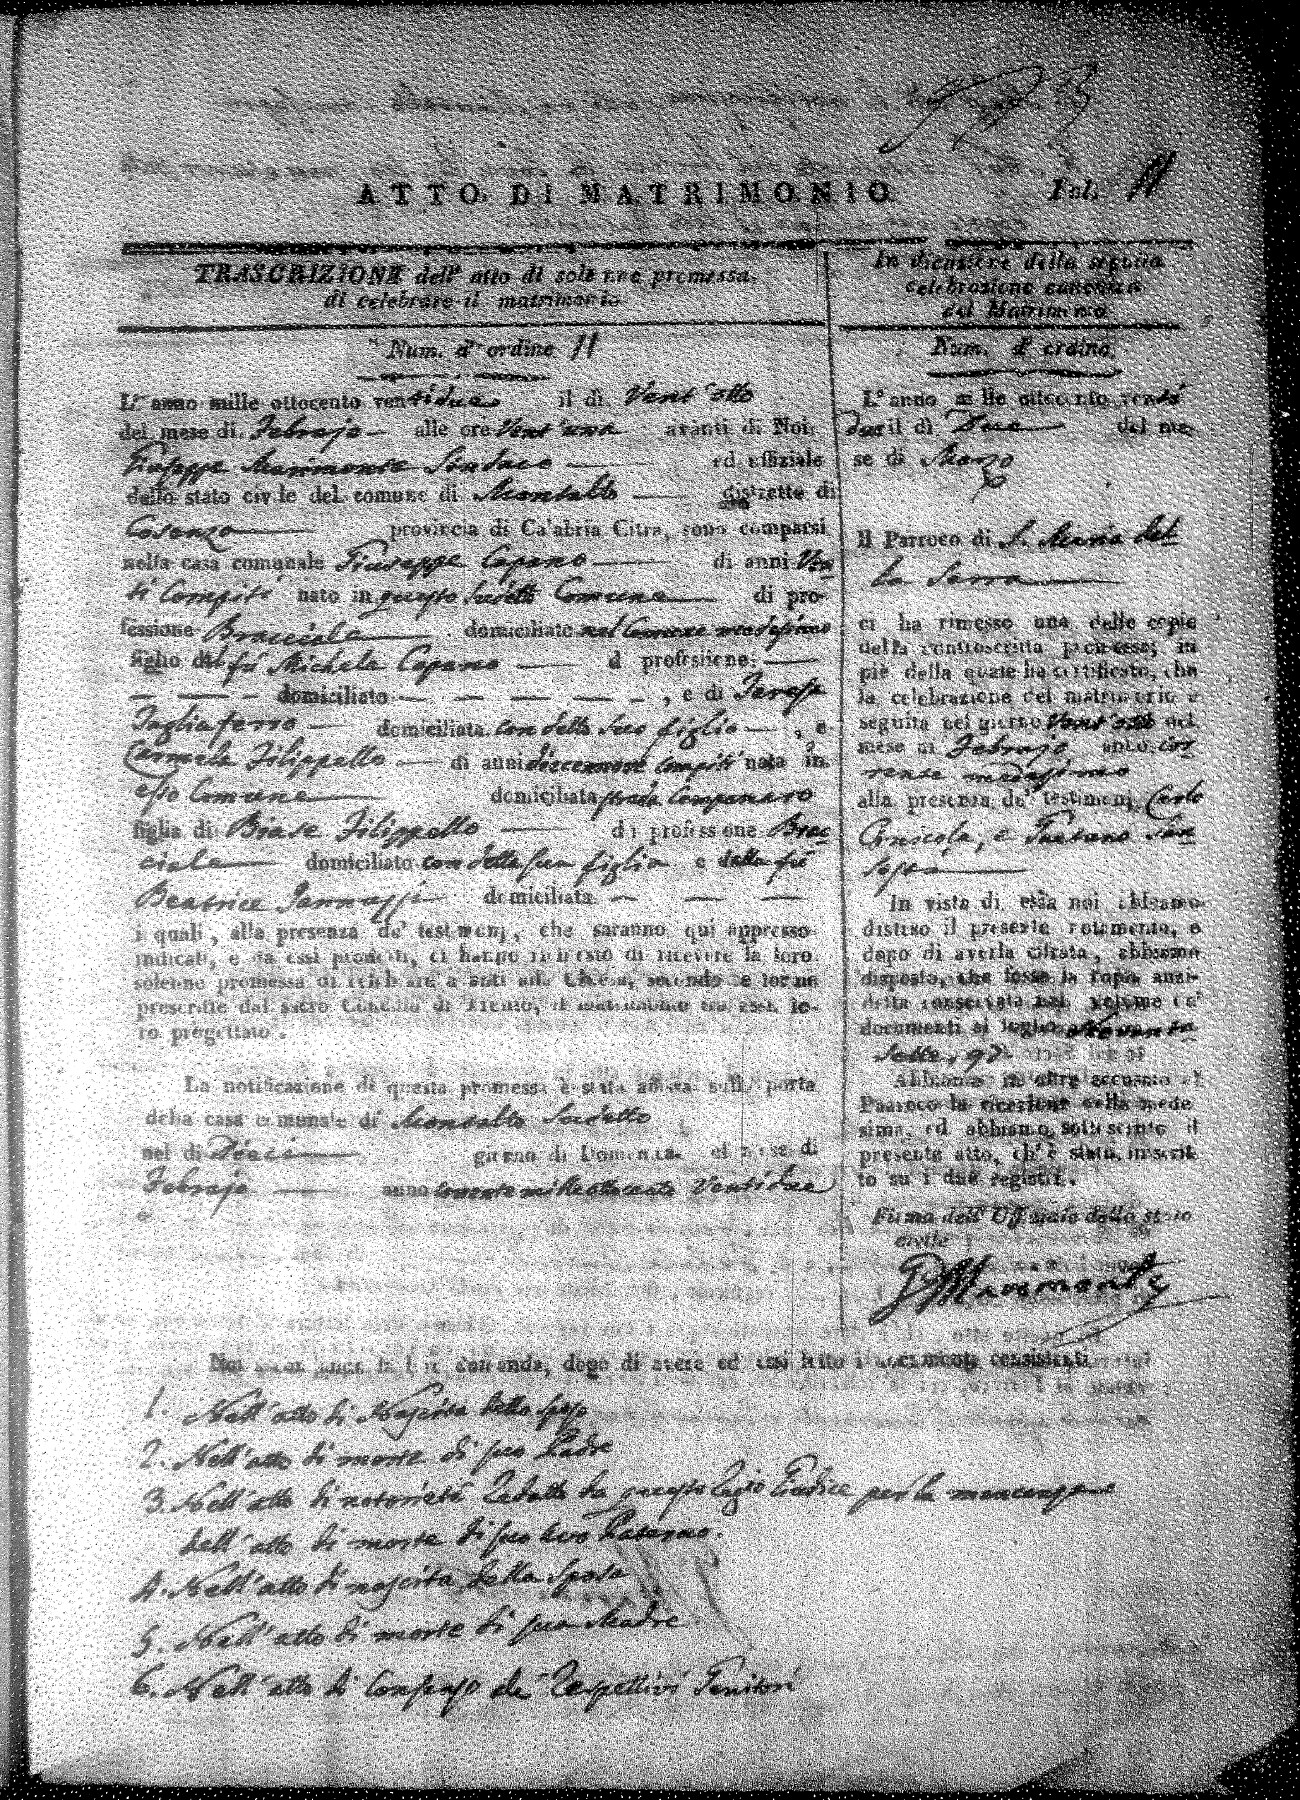 ATTO DI MATRIMONIO Fol. 11
TRASCRIZIONE dell' atto di solenne promessa
di celebrare il matrimonio
Num. d' ordine 11
L' anno mille ottocento ventidue il dì Vent'otto
del mese di Febrajo alle ore Vent'una avanti di Noi
Giuseppe Marimonte Sindaco ed uffiziale
dello stato civile del comune di Montalto distretto di
Cosenza provincia di Calabria Citra, sono comparsi
nella casa comunale Giuseppe Capano di anni Ven
ti Compiti nato in questo sudetto Comune di pro-
fessione Bracciale domiciliato nel Comune medesimo
figlio del fù Michele Capano di professione
domiciliato , e di Teresa
Tagliaferro domiciliata con detto suo figlio , e
Carmela Filippello di anni diecennove compiti nata in
esso Comune domiciliata strada
figlia di Biase Filippello di professione Brac
ciale domiciliato con detta sua figlia e della fù
Beatrice Jannuzzi domiciliata
i quali, alla presenza de' testimonj, che saranno qui appresso
indicati, e da essi prodotti, ci hanno richiesto di ricevere la loro
solenne promessa di celebrare avanti alla Chiesa, secondo le forme
prescritte dal sacro Concilio di Trento, il matrimonio tra essi lo-
ro progettato.
La notificazione di questa promessa è stata affissa sulla porta
della casa comunale di Montalto Sudetto
nel dì Dieci giorno di Domenica del mese di
Febrajo anno corrente mille ottocento Ventidue
In dicastere della seguita
celebrazione canonica
del Matrimonio
Num. d' ordine
L' anno mille ottocento venti
due il dì Due del me-
se di Marzo
Il Parroco di S. Maria del
la Serra
ci ha rimesso una delle copie
della controscritta promessa; in
piè della quale ha certificato, che
la celebrazione del matrimonio è
seguita nel giorno Vent'otto del
mese di Febrajo anno cor
rente medesimo
alla presenza de' testimonj Carlo
e Gaetano San
In vista di essa noi abbiamo
disteso il presente notamento, e
dopo di averla cifrata, abbiamo
disposto, che fosse la copia anzi-
detta conservata nel volume de'
documenti al foglio Novanta
sette, 97
Abbiamo in oltre accusato al
Parroco la ricezione della mede
sima, ed abbiamo sottoscritto il
presente atto, ch' è stato inscrit-
to su i due registri.
Firma dell' Uffiziale dello stato
civile
G. Marimonte
Noi dopo di avere ad essi letto i documenti consistenti
1. Nell'atto di Nascita dello sposo
2. Nell'atto di morte di suo Padre
3. Nell'atto di notorietà redatto da questo Regio Giudice per la mancanza
dell'atto di morte di suo Avo Paterno.
4. Nell'atto di nascita della Sposa
5. Nell'atto di morte di sua Madre
6. Nell'atto di Consenso de' rispettivi Genitori